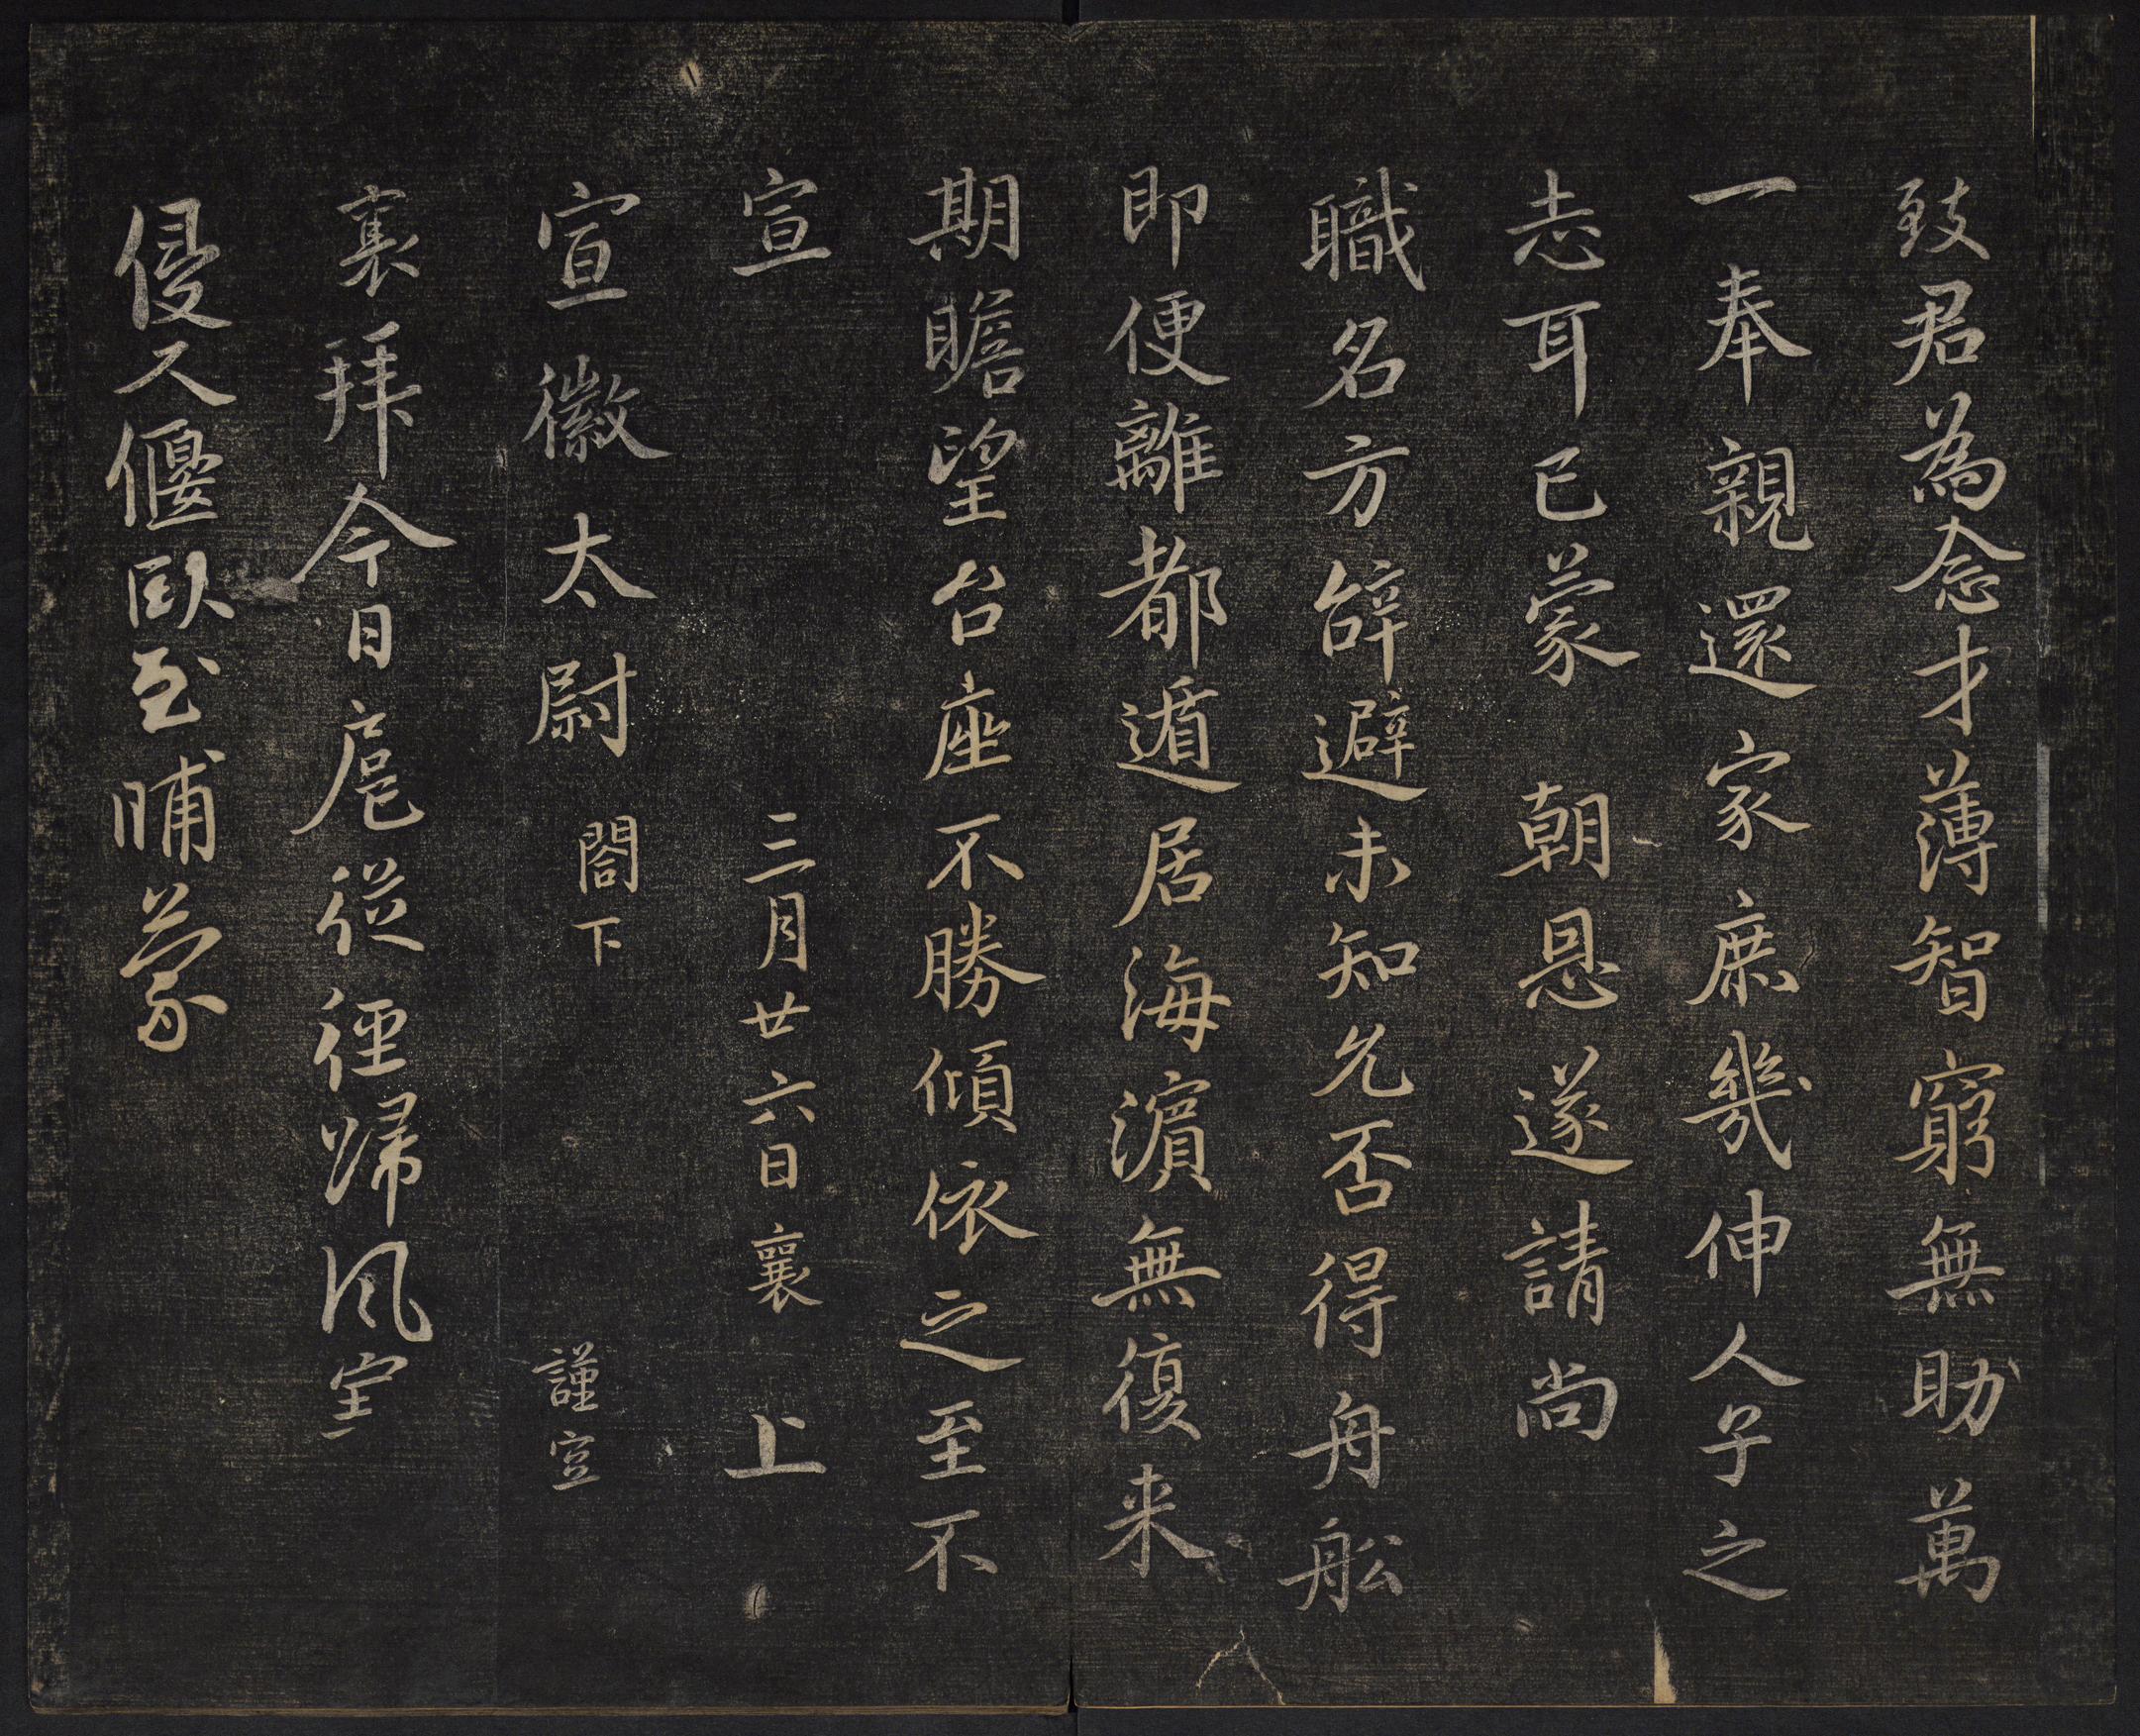 致君為念才薄智窮無助萬
一奉親還家庶幾伸人子之
志耳已蒙 朝恩遂請尚
職名方辭避未知允否得舟舩
即便離都遁居海濵無復来
期瞻望台座不勝傾依之至不
宣 三月廿六日襄 上
宣徽太尉 閤下 謹空
襄拜今日扈從徑歸風室
侵人偃臥至晡蒙